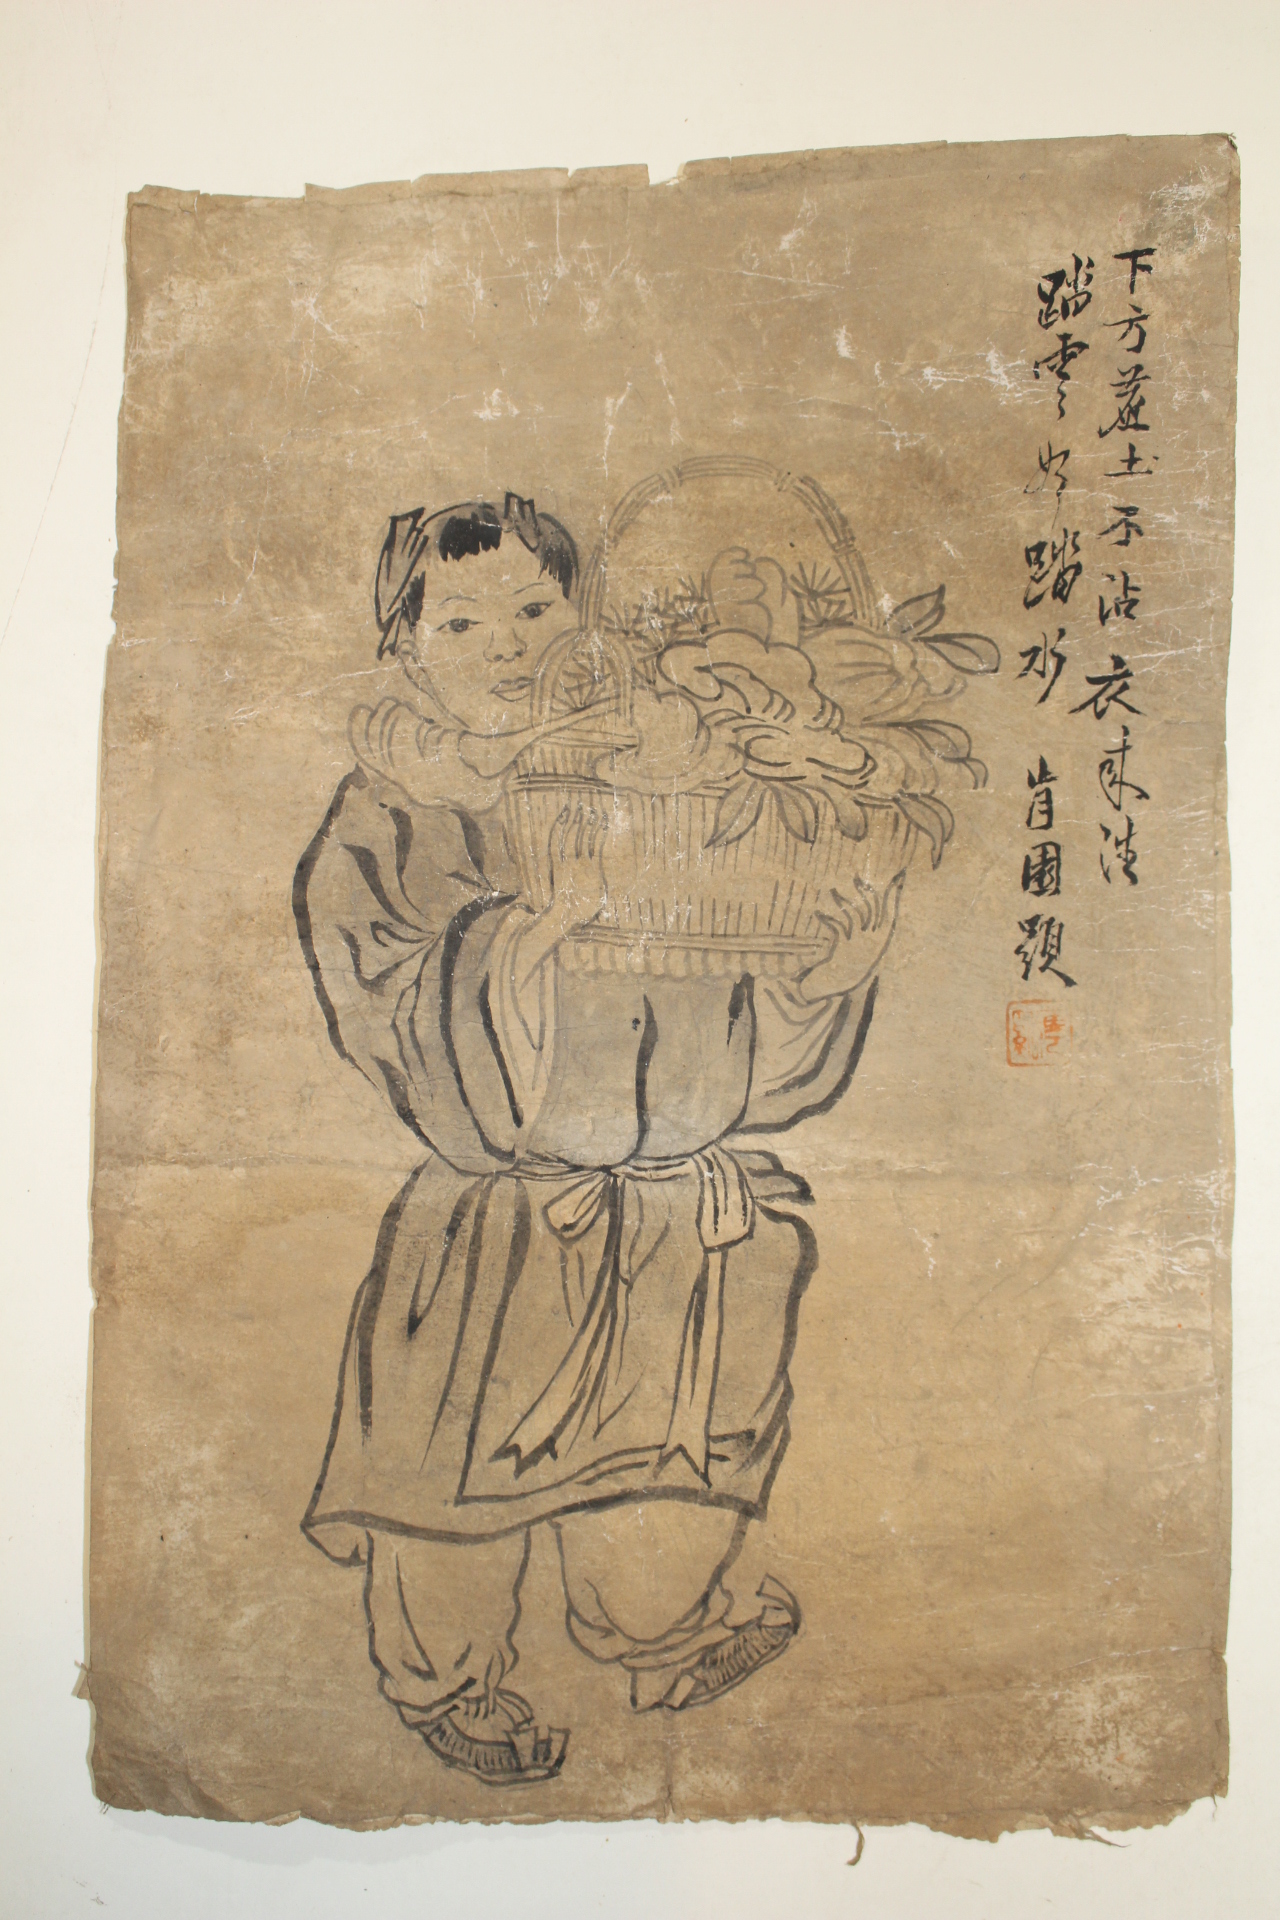 下方塵土不沾衣來往
踏雲如踏水 肯園題